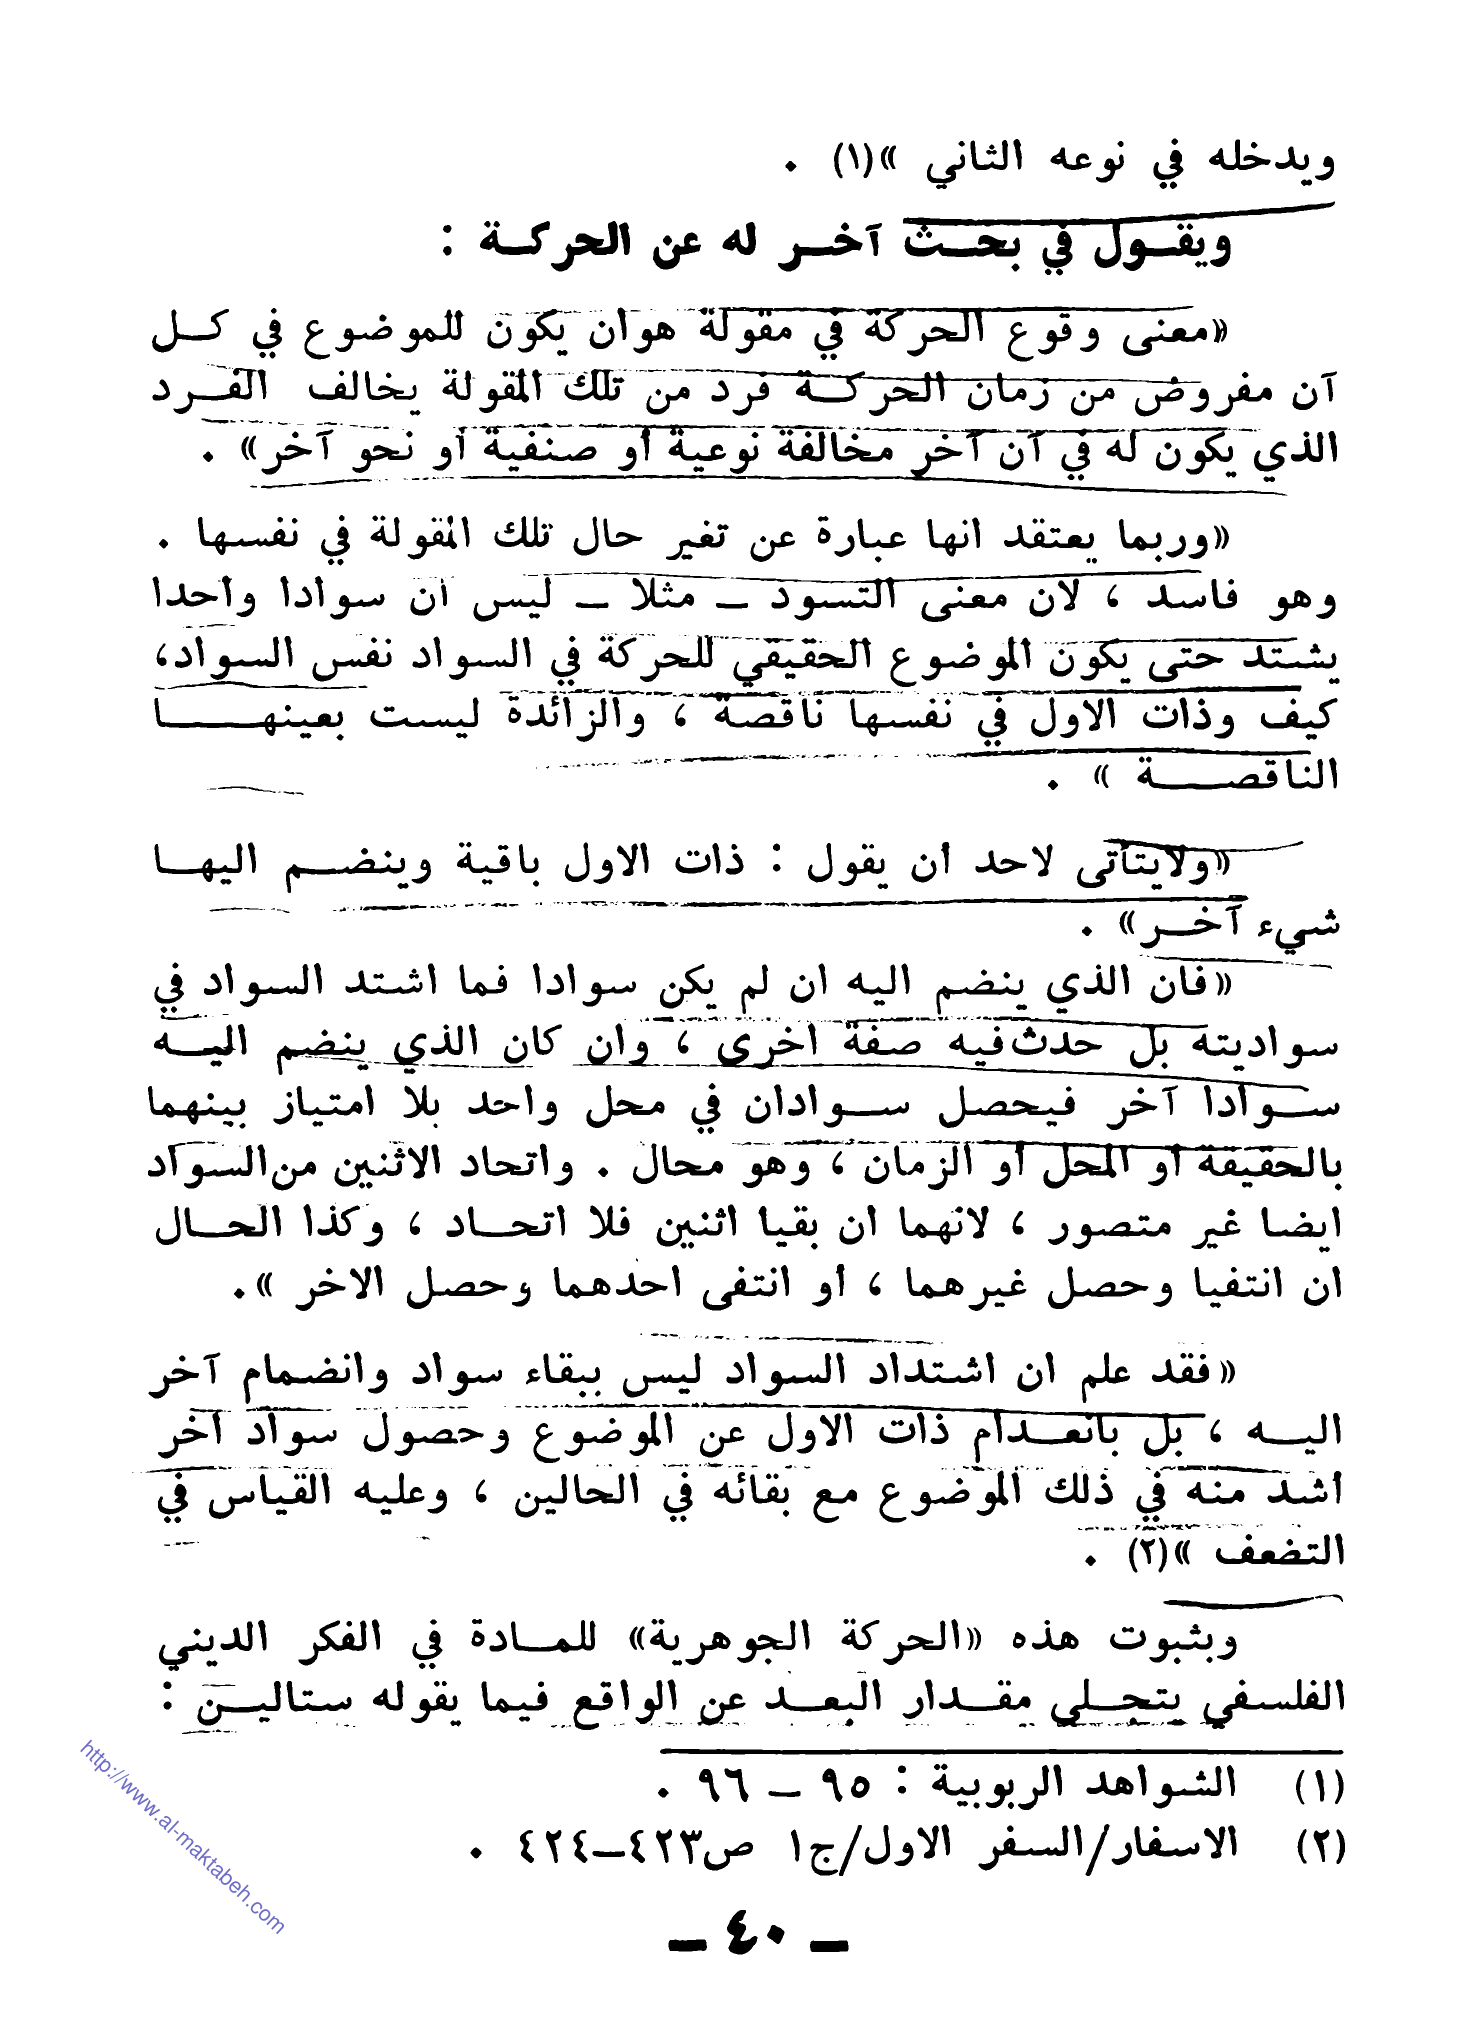 ويدخله في نوعه الثاني »(١) .
ويقول في بحث آخر له عن الحركة :
«معنى وقوع الحركة في مقولة هوأن يكون للموضوع في كل
آن مفروض من زمان الحركة فرد من تلك المقولة يخالف الفرد
الذي يكون له في آن آخر مخالفة نوعية أو صنفية أو نحو آخر» .
«وربما يعتقد انها عبارة عن تغير حال تلك المقولة في نفسها .
وهو فاسد ، لان معنى التسود – مثلا – ليس ان سوادا واحدا
يشتد حتى يكون الموضوع الحقيقي للحركة في السواد نفس السواد،
كيف وذات الاول في نفسها ناقصة ، والزائدة ليست بعينها
الناقصة » .
«ولايتأتى لاحد أن يقول : ذات الاول باقية وينضم اليها
شيء آخر» .
«فان الذي ينضم اليه ان لم يكن سوادا فما اشتد السواد في
سواديته بل حدث فيه صفة اخرى ، وان كان الذي ينضم اليه
سوادا آخر فيحصل سوادان في محل واحد بلا امتياز بينهما
بالحقيقة أو المحل أو الزمان ، وهو محال . واتحاد الاثنين من السواد
ايضا غير متصور ، لانهما ان بقيا اثنين فلا اتحاد ، وكذا الحال
ان انتفيا وحصل غيرهما ، أو انتفى احدهما وحصل الاخر ».
«فقد علم ان اشتداد السواد ليس ببقاء سواد وانضمام آخر
اليه ، بل بانعدام ذات الاول عن الموضوع وحصول سواد آخر
أشد منه في ذلك الموضوع مع بقائه في الحالين ، وعليه القياس في
التضعف »(٢) .
وبثبوت هذه «الحركة الجوهرية» للمادة في الفكر الديني
الفلسفي يتجلى مقدار البعد عن الواقع فيما يقوله ستالين :
(١) الشواهد الربوبية : ٩٥ – ٩٦ .
(٢) الاسفار/السفر الاول/ج١ ص٤٢٣–٤٢٤ .
– ٤٠ –
http://www.al-maktabeh.com